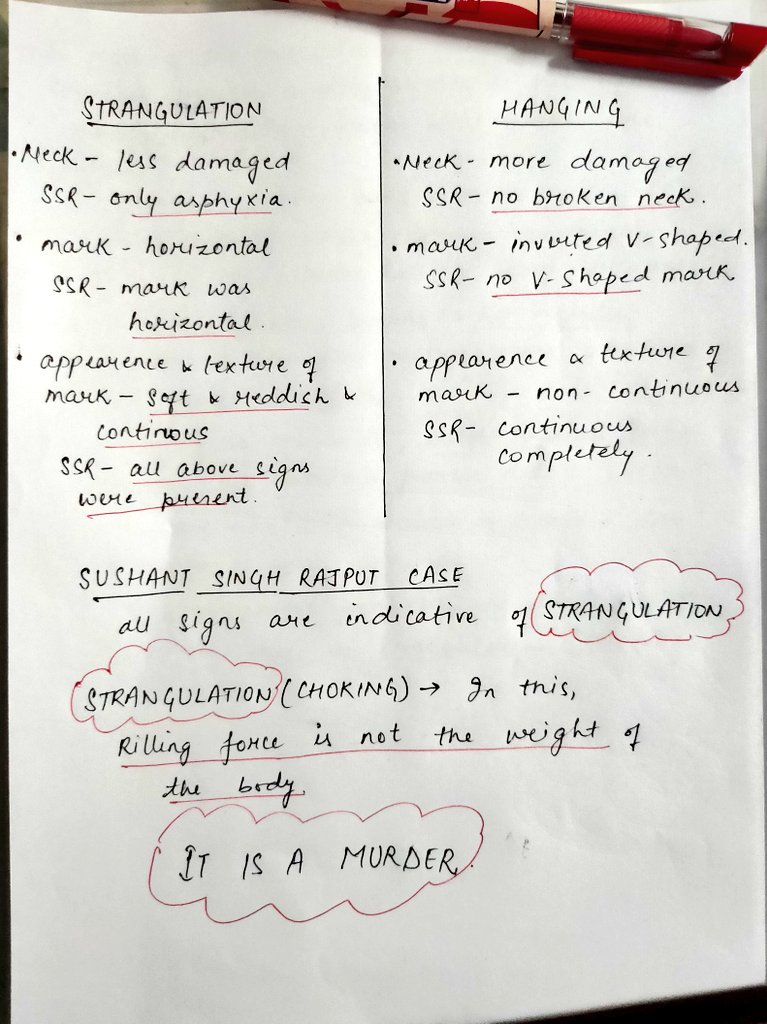 STRANGULATION
• Neck - less damaged
SSR- only asphyxia.
• mark - horizontal
SSR- mark was
horizontal.
• appearence & texture of
mark - soft & reddish &
continous
SSR- all above signs
were present.
HANGING
• Neck - more damaged
SSR- no broken neck.
• mark - inverted V-shaped.
SSR- no V-Shaped mark
• appearence & texture of
mark - non-continuous
SSR- continuous
completely.
SUSHANT SINGH RAJPUT CASE
all signs are indicative of STRANGULATION
STRANGULATION (CHOKING) → In this,
Killing force is not the weight of
the body.
IT IS A MURDER.